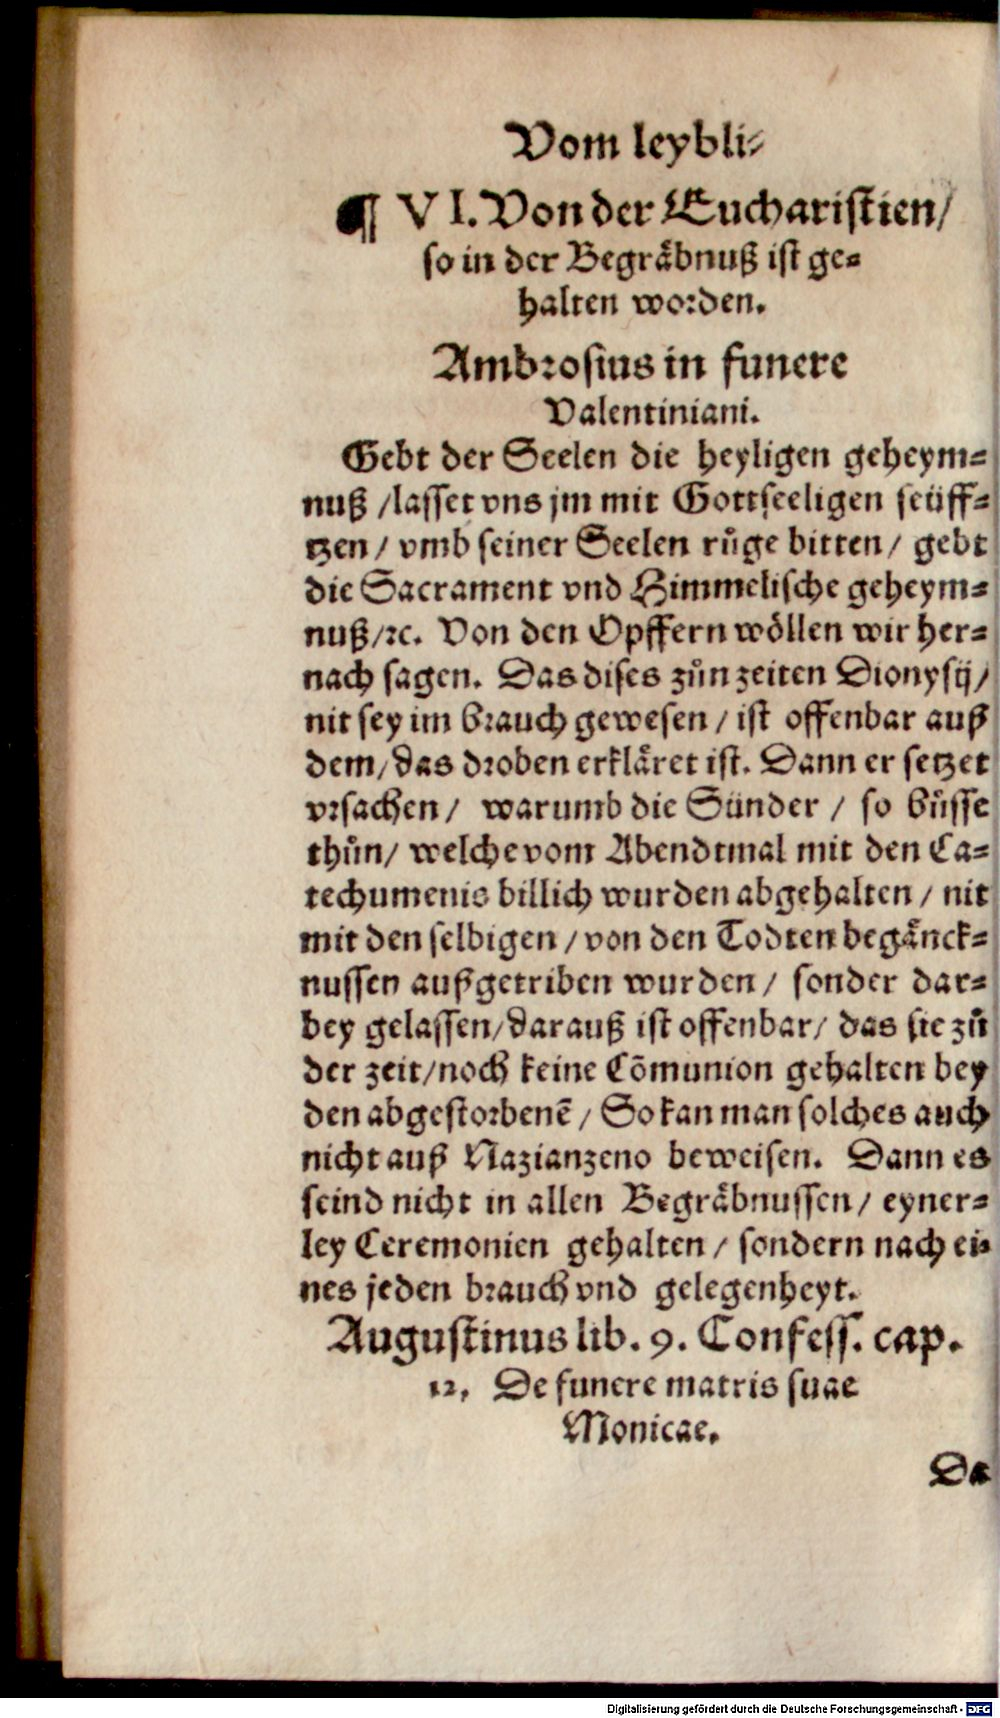 Vom leybli⸗
¶ VI. Von der Eucharistien/
so in der Begräbnuß ist ge⸗
halten worden.
Ambrosius in funere
Valentiniani.
Gebt der Seelen die heyligen geheym⸗
nuß /lasset vns jm mit Gottseeligen seüff⸗
tzen / vmb seiner Seelen růge bitten / gebt
die Sacrament vnd Himmelische geheym⸗
nuß/ꝛc. Von den Opffern wöllen wir her⸗
nach sagen. Das dises zůn zeiten Dionysij/
nit sey im brauch gewesen / ist offenbar auß
dem/das droben erkläret ist. Dann er setzet
vrsachen / warumb die Sünder / so bůsse
thůn/ welche vom Abendtmal mit den Ca⸗
techumenis billich wurden abgehalten / nit
mit den selbigen / von den Todten begänck⸗
nussen außgetriben wurden / sonder dar⸗
bey gelassen/darauß ist offenbar/ das sie zů
der zeit/noch keine Cõmunion gehalten bey
den abgestorbenẽ / So kan man solches auch
nicht auß Nazianzeno beweisen. Dann es
seind nicht in allen Begräbnussen / eyner⸗
ley Ceremonien gehalten / sondern nach ei⸗
nes jeden brauch vnd gelegenheyt.
Augustinus lib. 9. Confess. cap.
12. De funere matris suae
Monicae.
Da
Digitalisierung gefördert durch die Deutsche Forschungsgemeinschaft - DFG